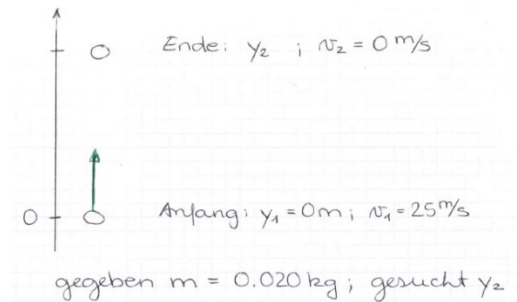 Ende: y₂ ; v₂ = 0 m/s
0
Anfang: y₁ = 0m ; v₁ = 25 m/s
gegeben m = 0.020 kg ; gesucht y₂